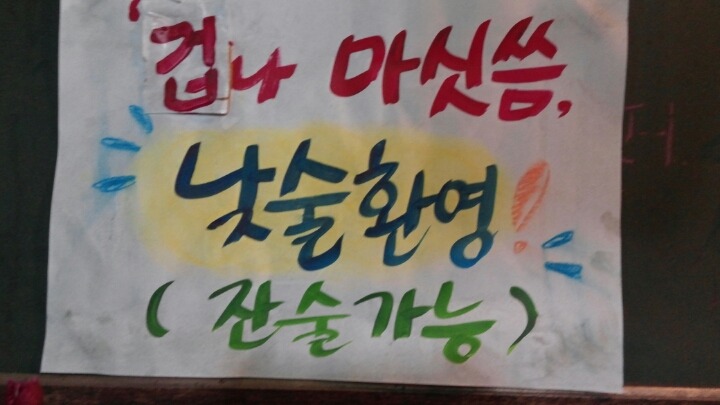 '겁나 마싯씀,
낮술환영!
(잔술가능)